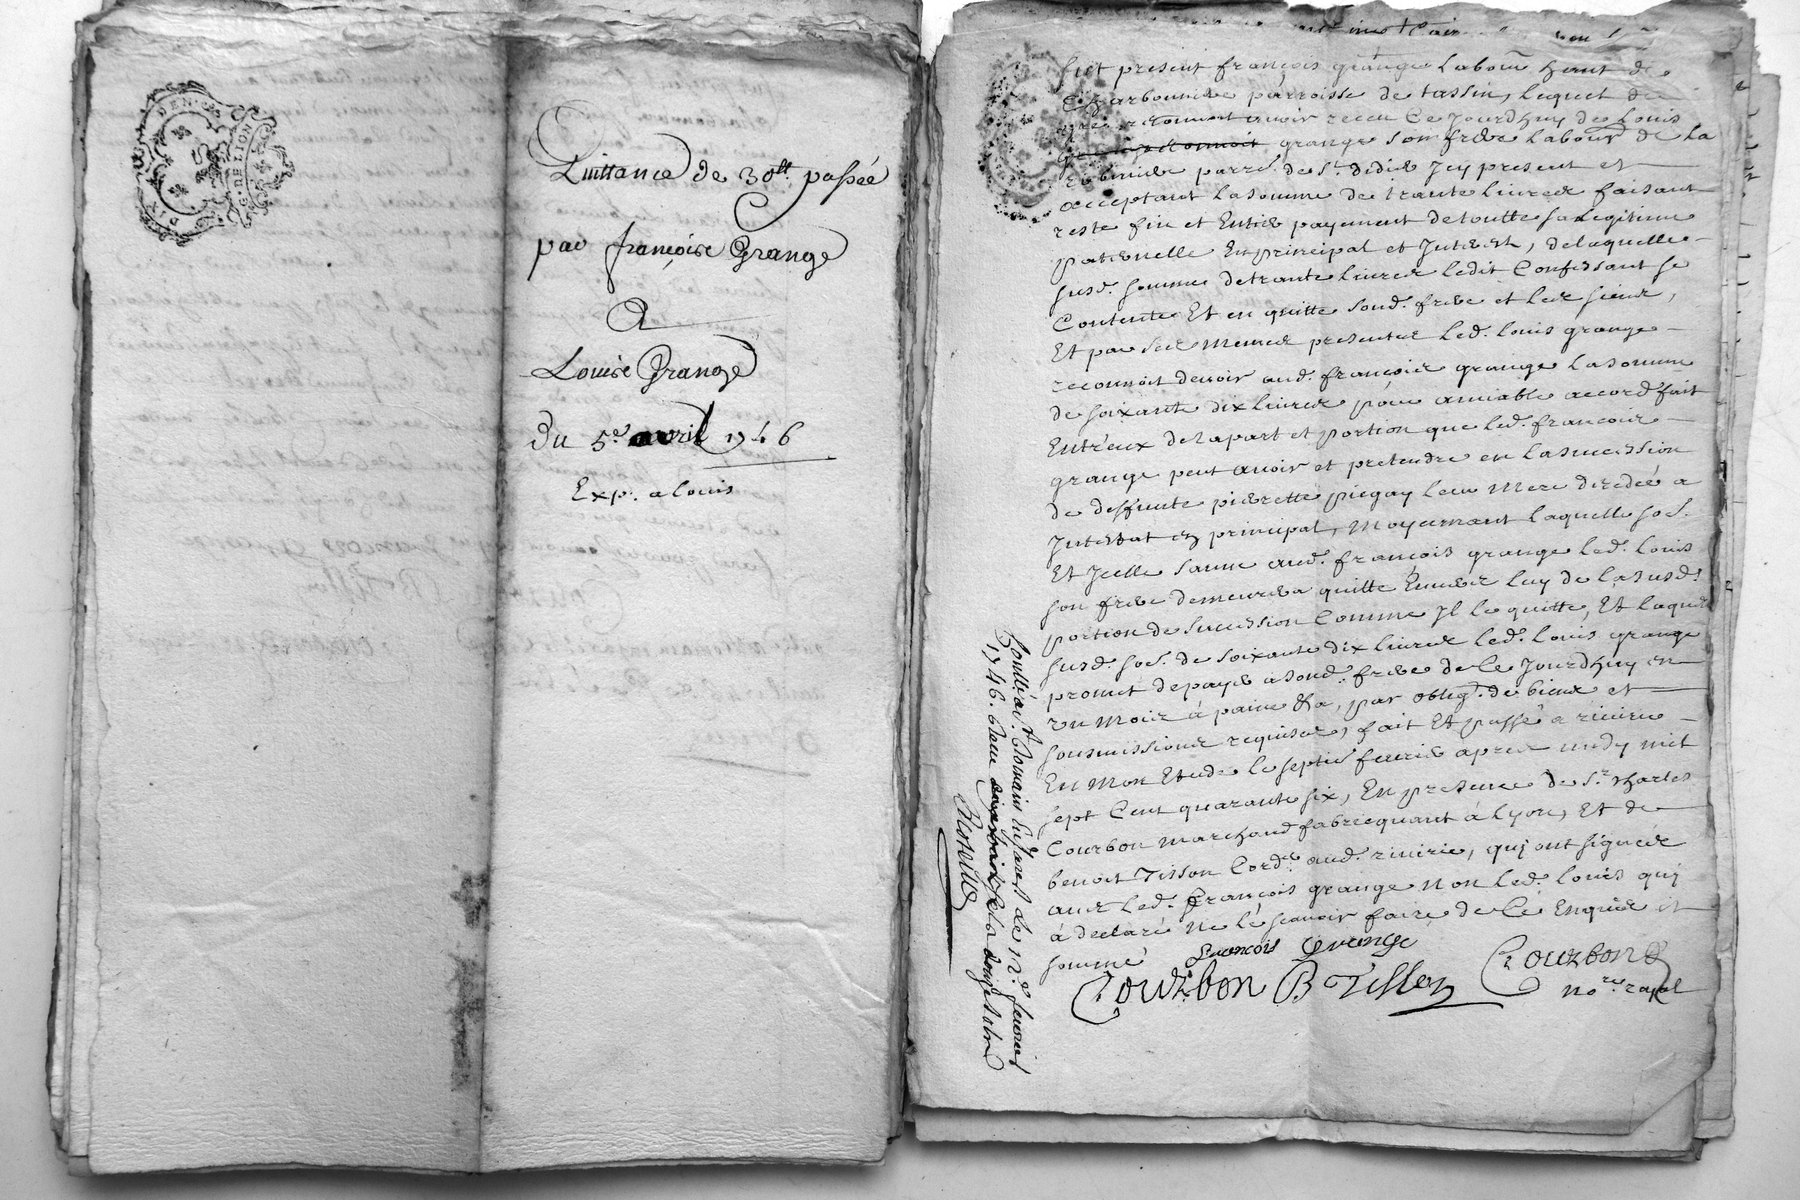 DIX DEN.ers
G. DE LION
Quittance de 30lt. passée
par françois Grange
A
Louis Grange
Du 5e. avril 1746
Exp. a louis
fut present françois grange labour hant de
Charbonniere parroisse de tassin, lequel de
gré reconnoit avoir receu Ce Jourdhuy de Louis
grange son frere labour de la
parre. de St. didier Icy present et
acceptant la somme de trante livres faisant
reste fin et Entier payement de toutte sa legitime
paternelle En principal et Interest, de laquelle
susd. somme de trante livres ledit Confessant se
Contente Et en quitte sond. frere et les siens,
Et par ses memes presentes led. louis grange
reconnoit devoir aud. françois grange la somme
de soixante dix livres pour amiable accord fait
Entreux de la part et portion que led. francois
grange peut avoir et pretendre en la sucession
de deffunte pierrette piegay leur Mere decedée a
Intestat en principal, Moyennant laquelle so.
Et Icelle payée aud. françois grange led. louis
son frere demeurera quitte Envers luy de la susd.
portion de sucession Comme Il le quitte, Et laquelle
susd. so. de soixante dix livres led. louis grange
promet de payer a sond. frere de Ce Jourdhuy en
un Mois à paine &a, par oblig. de biens et
sousmissions requises, fait Et passé a rivirie
En Mon Etude le septie fevrier apres midy mil
sept Cent quarante six, En presence de Sr. Charles
Courbon Marchand fabricquant à Lyon, Et de
benoit Tisson Cordr. aud. rivirie, qui ont signés
avec led. François grange Non led. louis qui
à declaré Ne le scavoir faire de Ce Enquis et
sommé
françois Grange
Courbon B Tisson Courbon
Nore. royal
Conllé a St. Romain En Jarest Le 12e. fevrier
1746. Reçu douze sols